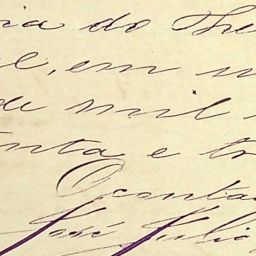 ia do The
l, em
de mil
enta e tr
O conta
José Julio